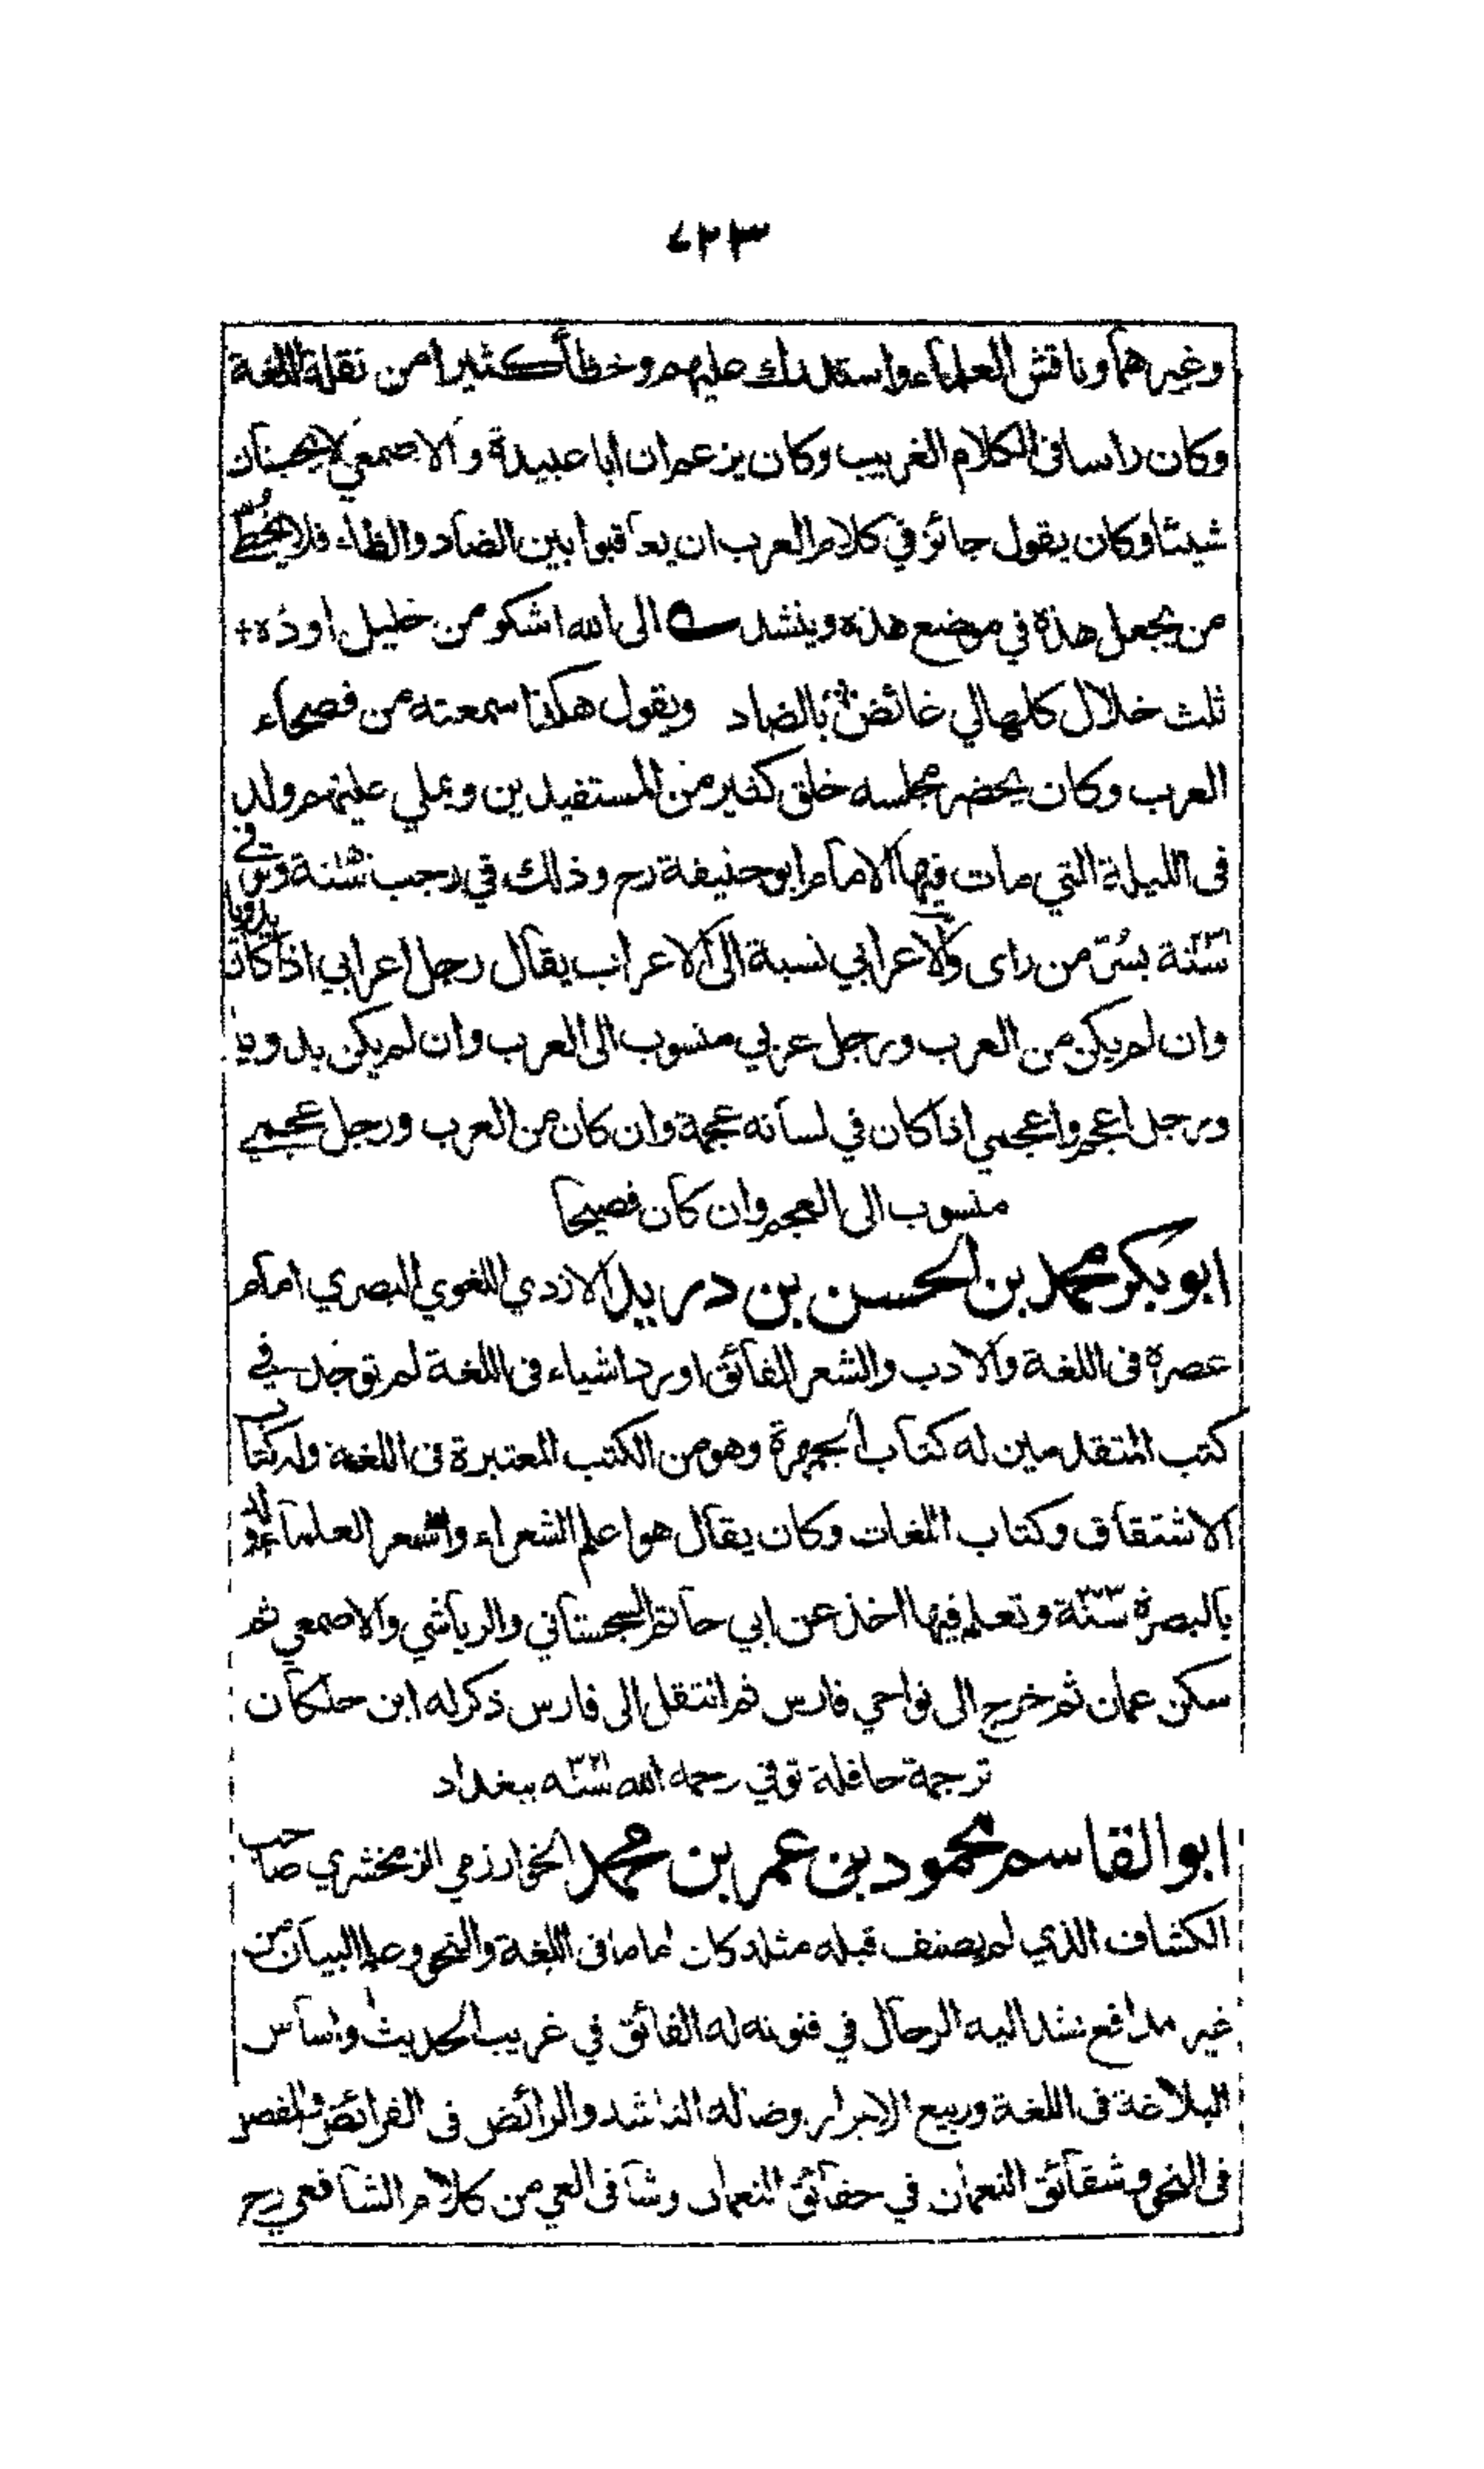 ٧٢٣
وغيرهما وناقش العلماء واستدرك عليهم وخطأ كثيرا من نقلة اللغة
وكان راسا في الكلام الغريب وكان يزعم ان ابا عبيدة والاصمعي لا يحسنان
شيئا وكان يقول جائز في كلام العرب ان يعاقبوا بين الضاد والظاء فلا يخطئ
من يجعل هذه في موضع هذه وينشد الى الله اشكو من خليل اوده
ثلث خلال كلها لي غائض بالضاد ويقول هكذا سمعته من فصحاء
العرب وكان يحضر مجلسه خلق كثير من المستفيدين ويملي عليهم ولد
في الليلة التي مات فيها الامام ابو حنيفة رح وذلك في رجب سنة وتوفي
سنة بسر من راى والاعرابي نسبة الى الاعراب يقال رجل اعرابي اذا كان بدويا
وان لم يكن من العرب ورجل عربي منسوب الى العرب وان لم يكن بدويا
ورجل اعجم واعجمي اذا كان في لسانه عجمة وان كان من العرب ورجل عجمي
منسوب الى العجم وان كان فصيحا
ابو بكر محمد بن الحسن بن دريد الازدي اللغوي البصري امام
عصره في اللغة والادب والشعر الفائق اورد اشياء في اللغة لم توجد في
كتب المتقدمين له كتاب الجمهرة وهو من الكتب المعتبرة في اللغة وله كتاب
الاشتقاق وكتاب اللغات وكان يقال هو اعلم الشعراء واشعر العلماء ولد
بالبصرة سنة ٢٢٣ وتعلم فيها اخذ عن ابي حاتم السجستاني والرياشي والاصمعي ثم
سكن عمان ثم خرج الى نواحي فارس ثم انتقل الى فارس ذكر له ابن خلكان
ترجمة حافلة توفي رحمه الله سنة ٣٢١ ببغداد
ابو القاسم محمود بن عمر بن محمد الخوارزمي الزمخشري صاحب
الكشاف الذي لم يصنف قبله مثله كان اماما في اللغة والنحو وعلم البيان من
غير مدافع تشد اليه الرحال في فنونه له الفائق في غريب الحديث واساس
البلاغة في اللغة وربيع الابرار وضالة الناشد والرائض في الفرائض والمفصل
في النحو وشقائق النعمان في حقائق النعمان وشافي العي من كلام الشافعي رح